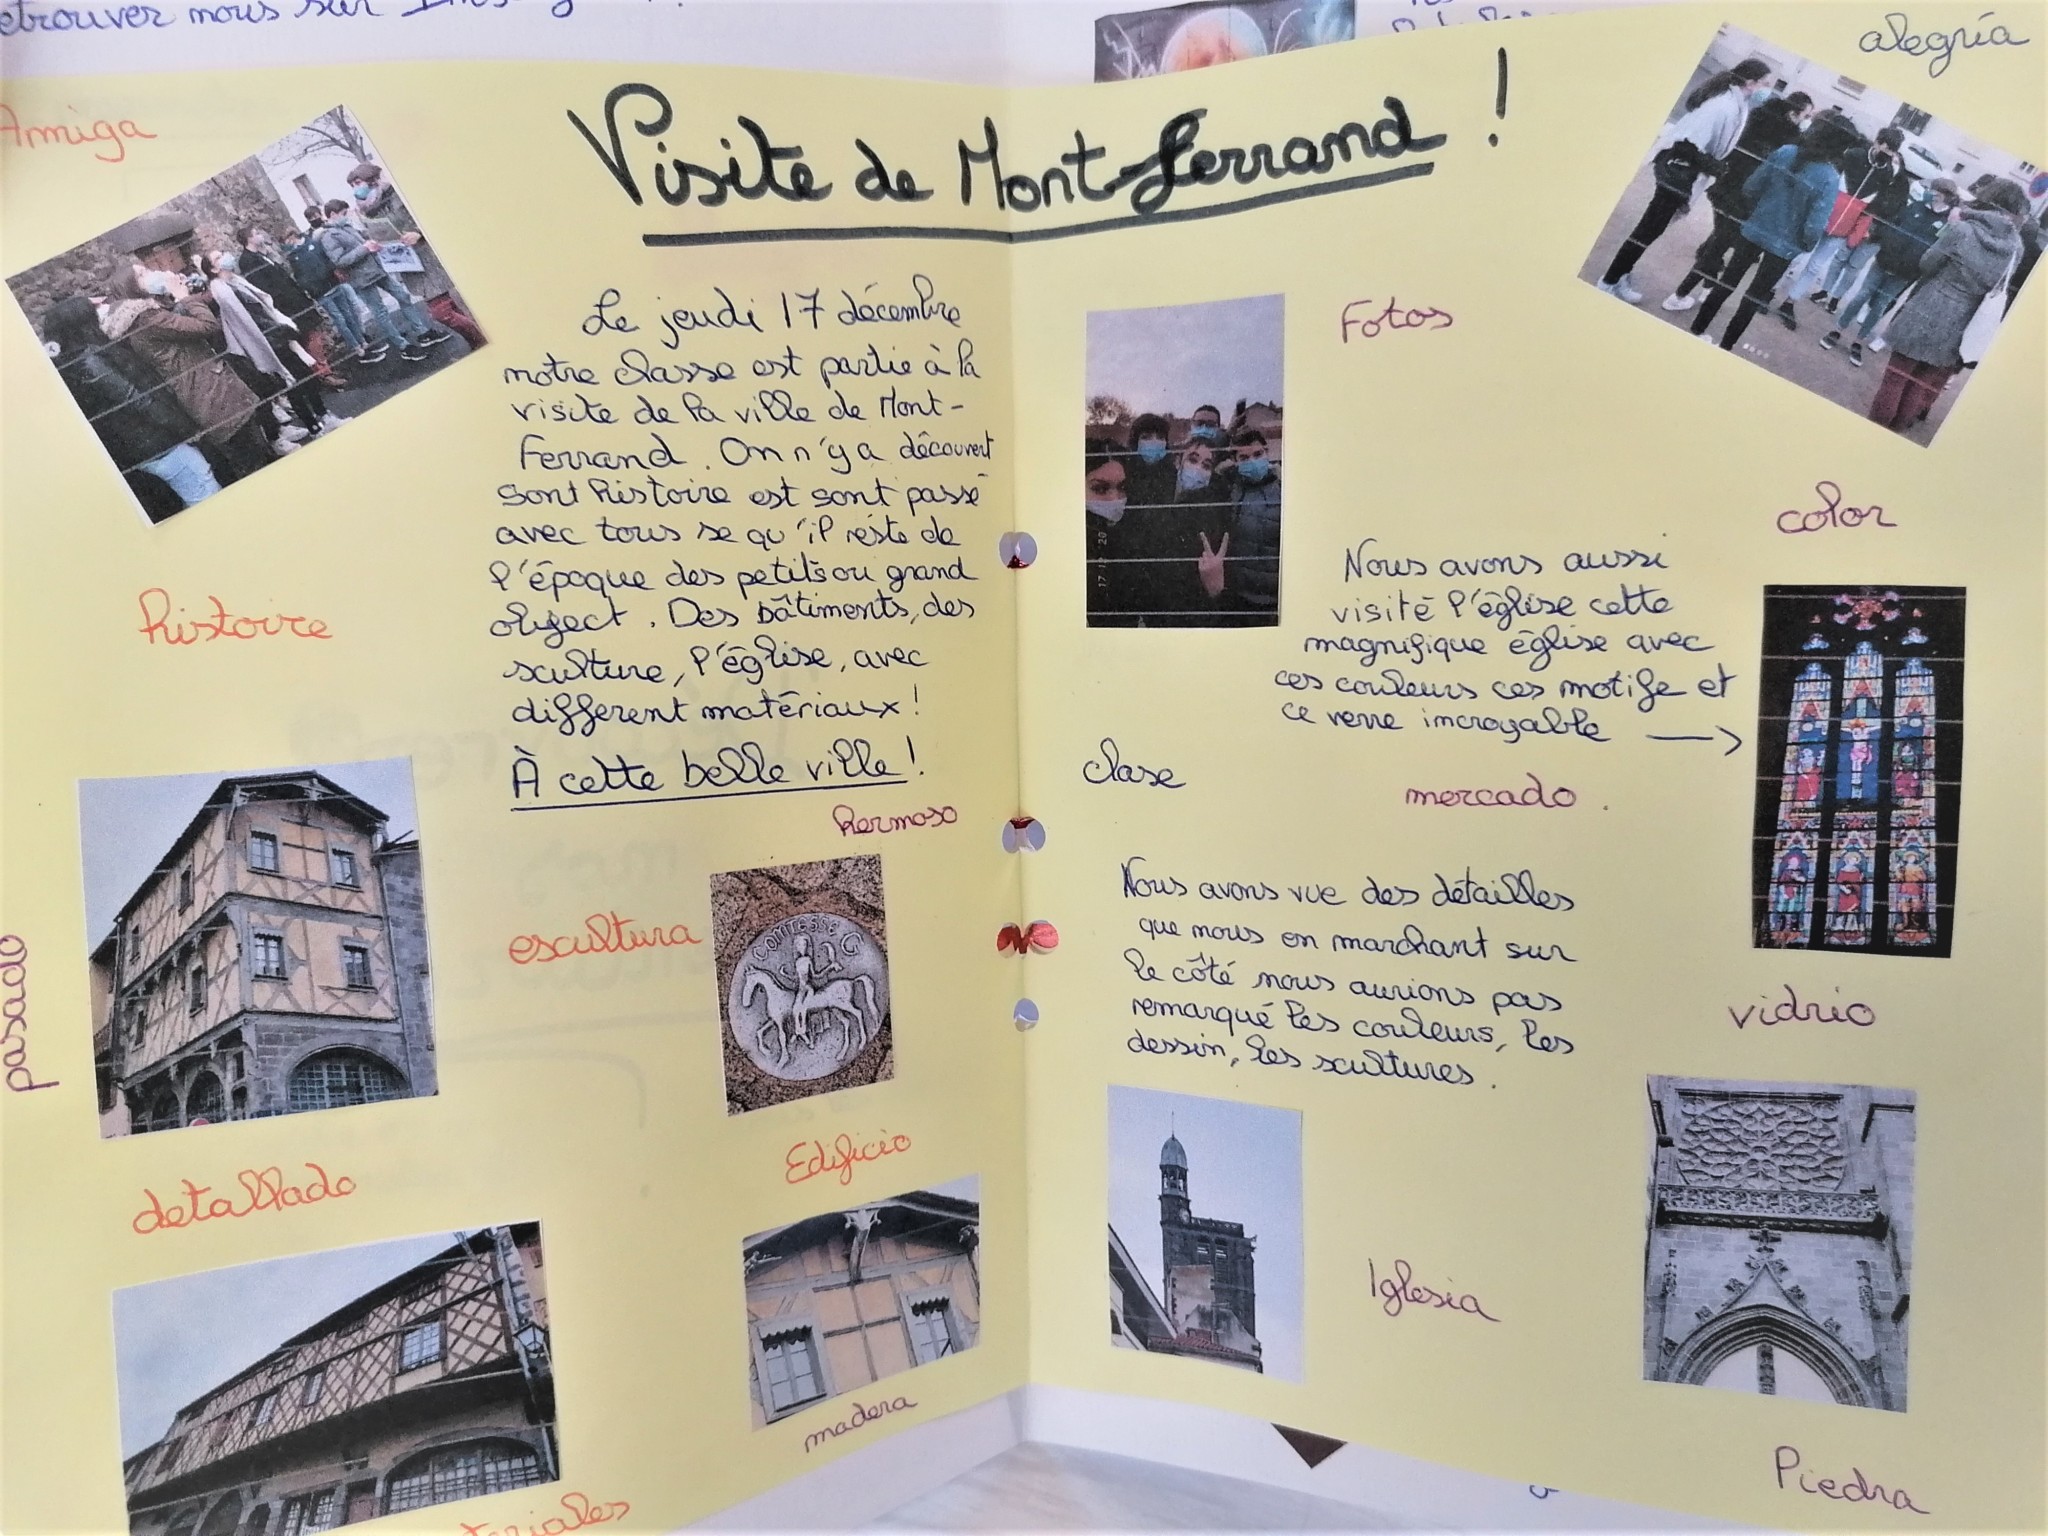 etrouver nous sur
alegría
Amiga
Visite de Mont-Ferrand !
Le jeudi 17 décembre
notre classe est partie à la
visite de la ville de Mont-
Ferrand. On n'y a découvert
sont histoire est sont passé
avec tous se qu'il réste de
l'époque des petits ou grand
object. Des bâtiments, des
sculture, l'église, avec
different matériaux !
À cette belle ville !
histoire
pasado
hermoso
escultura
COMTESSE G
detallado
Edificio
madera
teriales
Fotos
17 12 20
color
Nous avons aussi
visité l'église cette
magnifique église avec
ces couleurs ces motife et
ce verre incroyable →
clase
mercado .
Nous avons vue des détailles
que nous en marchant sur
le côté nous aurions pas
remarqué les couleurs, les
dessin, les scultures.
vidrio
Iglesia
Piedra